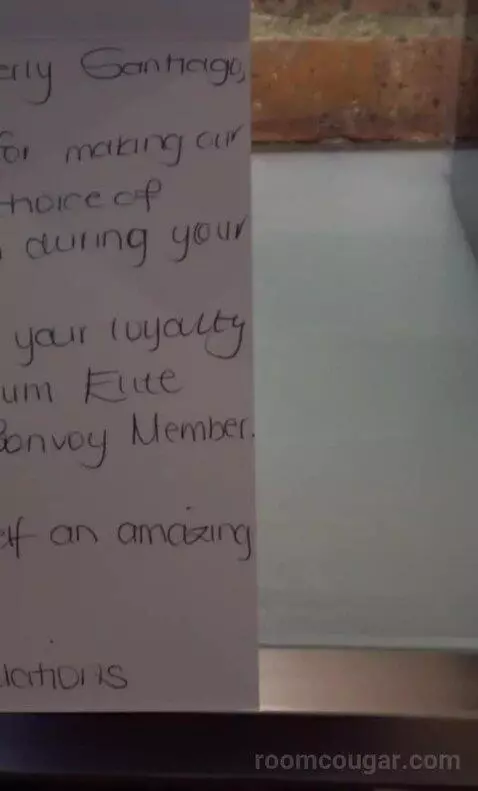 erly Santiago,
for making our
choice of
during your
your loyalty
um Elite
Bonvoy Member.
elf an amazing
lations
roomcougar.com